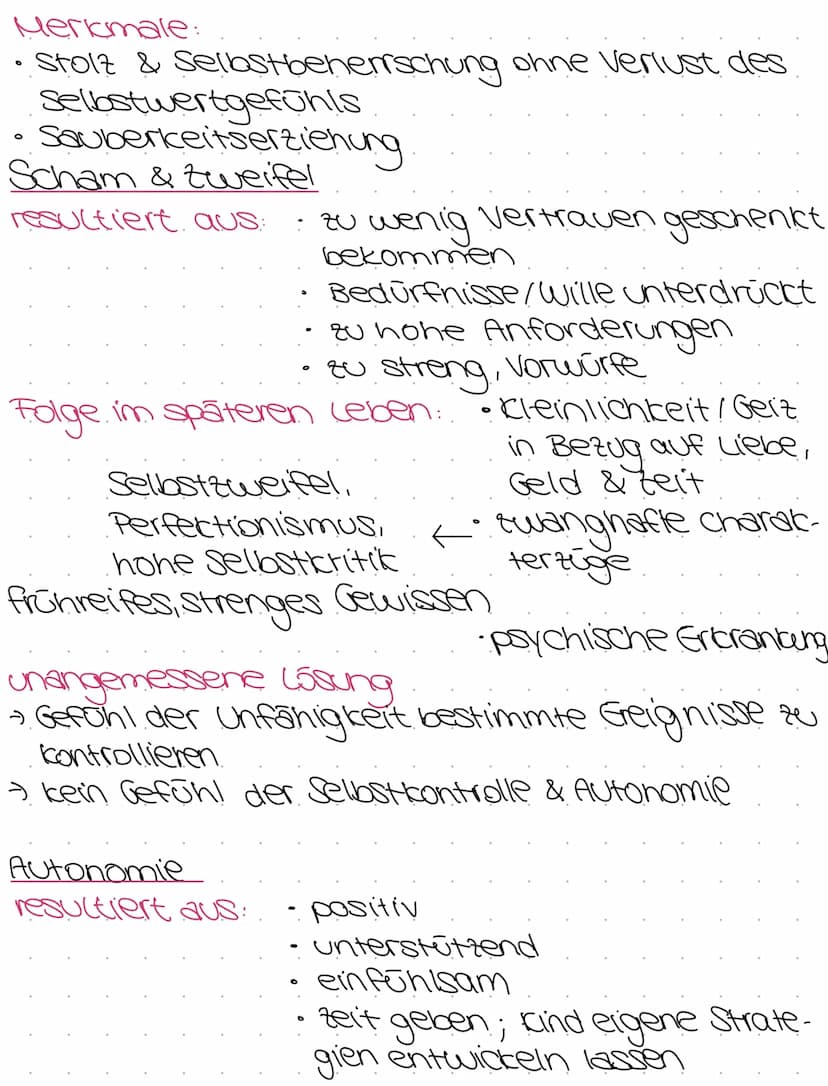 Merkmale:
• Stolz & Selbstbeherrschung ohne Verlust des
Selbstwertgefühls
• Sauberkeitserziehung
Scham & Zweifel
resultiert aus: • zu wenig Vertrauen geschenkt
bekommen
• Bedürfnisse/Wille unterdrückt
• zu hohe Anforderungen
• zu streng, Vorwürfe
Folge im späteren Leben: • Kleinlichkeit / Geiz
in Bezug auf Liebe,
Geld & Zeit
Selbstzweifel,
Perfektionismus,
hohe Selbstkritik
← • zwanghafte Charak-
terzüge
frühreifes, strenges Gewissen
• psychische Erkrankung
unangemessene Lösung
→ Gefühl der Unfähigkeit bestimmte Ereignisse zu
kontrollieren
→ kein Gefühl der Selbstkontrolle & Autonomie
Autonomie
resultiert aus: • positiv
• unterstützend
• einfühlsam
• Zeit geben; Kind eigene Strate-
gien entwickeln lassen